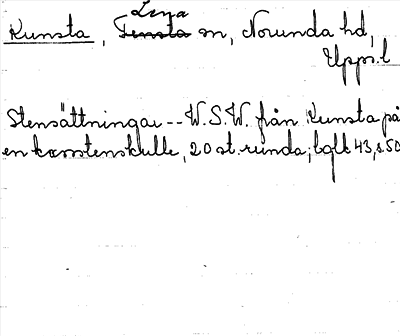 Lena
Kunsta, Tensta sn, Norunda hd,
Upps. l
Stensättningar -- W.S.W. från Kunsta på
en korsstenskulle, 20 st. runda; bglt 43, s. 50